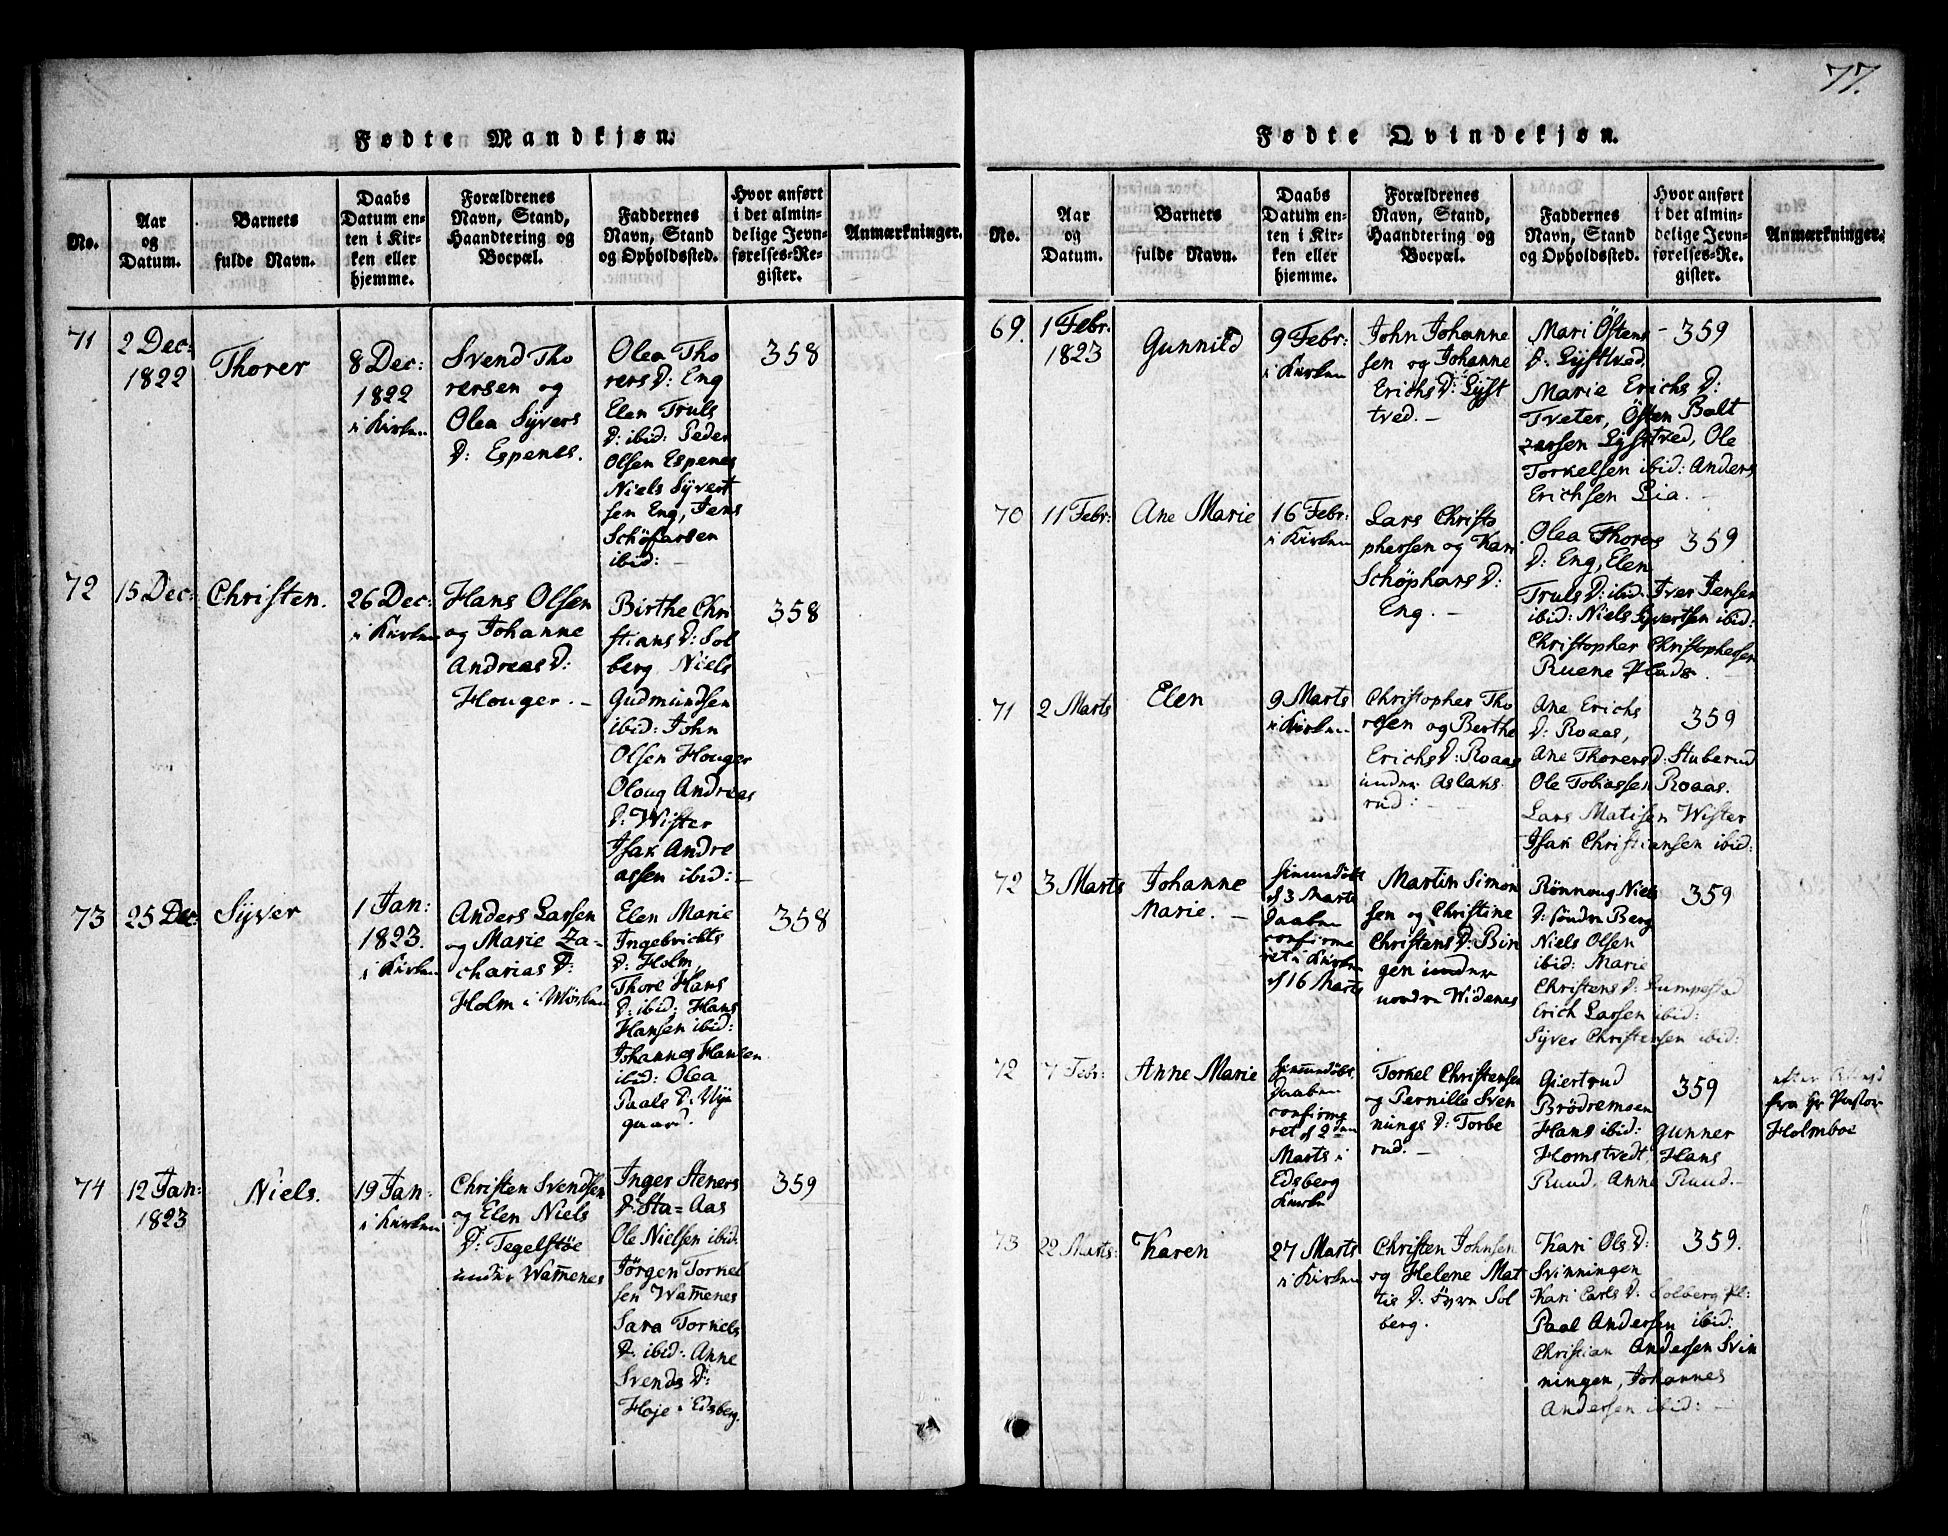 77.
Fødte Mandkjøn.
No.
Aar
og
Datum.
Barnets
fulde Navn.
Daabs
Datum en-
ten i Kir-
ken eller
hjemme.
Forældrenes
Navn, Stand,
Haandtering og
Boepæl.
Faddernes
Navn, Stand
og Opholdssted.
Hvor anført
i det almin-
delige Jevn-
førelses-Re-
gister.
Anmærkninger.
71
2 Dec:
1822
Thorer
8 Dec:
1822
i Kirken
Svend Tho
rersen og
Olea Syvers
D: Espenes.
Olea Tho
rers D: Eng
Elen Truls
D: ibid: Peder
Olsen Espenes
Niels Syvert
sen Eng, Jens
Schöfarsen
ibid: –
358
72
15 Dec:
Christen.
26 Dec:
i Kirken
Hans Olsen
og Johanne
Andreas D:
Houger. –
Birthe Chri
stians D: Sol
berg Niels
Gudmundsen
ibid: John
Olsen Houger
Oloug Andreas
D: Wister
Isak Andre
assen ibid: –
358
73
25 Dec:
Syver
1 Jan:
1823.
i Kirken
Anders Larsen
og Marie Za-
charias D:
Holm i
Elen Marie
Ingebrichts
D: Holm,
Thore Hans
D: ibid: Hans
Hansen ibid:
Johannes Hansen
ibid: Olea
Paals D: Ny
gaard.
358
74
12 Jan:
1823
Niels.
19 Jan:
i Kirken
Christen Svendsen
og Elen Niels
D: Tegelstöe
under Wam̅enes
Inger Steners
D: Sta=Aas
Ole Nielsen ibid:
Jörgen Torkel
sen Wam̅enes
Sara Torkels
D: ibid: Anne
Svends D:
Hoje i Edsberg.
359
Fødte Qvindekjøn.
No.
Aar
og
Datum.
Barnets
fulde Navn.
Daabs
Datum en-
ten i Kir-
ken eller
hjemme.
Forældrenes
Navn, Stand,
Haandtering og
Boepæl.
Faddernes
Navn, Stand
og Opholdssted.
Hvor anført
i det almin-
delige Jevn-
førelses-Re-
gister.
Anmærkninger.
69.
1 Febr.
1823
Gunnild
9 Febr:
i Kirken
John Johanne
sen og Johanne
Erichs D: Lyst
tved. –
Mari Östens –
D: Lysttved,
Marie Erichs D:
Tveter, Östen Balt
zersen Lysttved, Ole
Torkelsen ibid: Anders
Erichsen Lia. –
359
70
11 Febr:
Ane Marie
16 Febr:
i Kirken
Lars Christo
phersen og Kari
Schöphars D:
Eng. –
Olea Thorers
D: Eng, Elen
Truls D: ibid: Iver Jensen
ibid: Niels Syvertsen ibid:
Christopher Christophersen
Ruene Plads.
359
71
2 Marts
Elen
9 Marts
i Kirken
Christopher Tho
resen og Berthe
Erichs D: Roaas
under Aslaks
rud: –
Ane Erichs
D: Roaas,
Ane Thorers D: Stuberud
Ole Tobiassen Roaas.
Lars Matisen Wister
Isak Christiansen ibid:
359
72
3 Marts
Johanne
Marie. –
hjemmedöbt
d 3 Marts
Daaben
confirme
ret i Kirken
d 16 Marts
Martin Simon
sen og Christine
Christens D: Bin
gen under
nordre Widenes
Rönnoug Niels
D: söndre Berg
Niels Olsen
ibid: Marie
Christens D: Gumpestad
Erich Larsen ibid:
Syver Christensen ibid:
359
72
7 Febr:
Anne Marie
hjemmedöbt
Daaben
confirme
ret d 2den
Marts i
Edsberg
Kirke
Torkel Christensen
og Pernille Sven
nings D: Torbe
rud. –
Giertrud
Brödremoen
Hans ibid: Gunner
Homstvedt, Hans
Ruud, Anne Ruud. –
359
efter Attest
fra Hr Pastor
Holmboe
73
22 Marts:
Karen
27 Marts
i Kirken
Christen Johnsen
og Helene Mat
tis D: Svinningen
Kari Ols D:
Svinningen
Kari Carls D: Solberg Pl:
Paal Andersen ibid:
Christian Andersen Svin
ningen, Johannes
Andersen ibid: –
359.